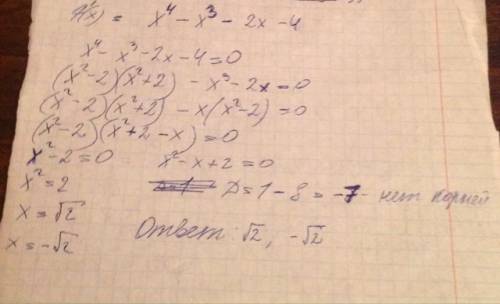 f(x) = x⁴ - x³ - 2x - 4
x⁴ - x³ - 2x - 4 = 0
(x² - 2)(x² + 2) - x³ - 2x = 0
(x² - 2)(x² + 2) - x(x² - 2) = 0
(x² - 2)(x² + 2 - x) = 0
x² - 2 = 0 x² - x + 2 = 0
x² = 2 D = 1 - 8 = -7 - нет корней
x = √2
x = -√2 Ответ: √2, -√2